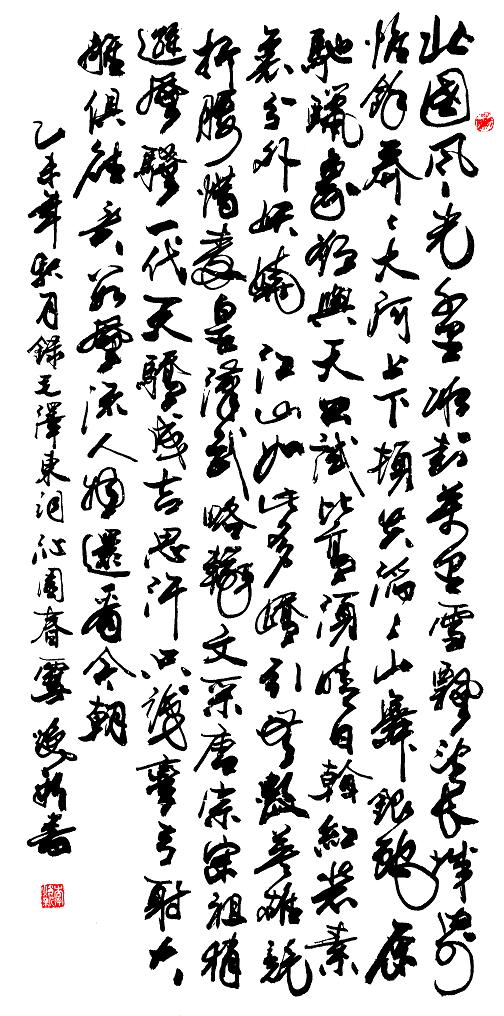 北國風光千里冰封萬里雪飄望長城内外
惟餘莽〻大河上下頓失滔〻山舞銀蛇原
馳蠟象欲與天公試比高須晴日看紅裝素
裹分外妖嬈江山如此多嬌引無數英雄競
折腰惜秦皇漢武略輸文采唐宗宋祖稍
遜風騷一代天驕成吉思汗只識彎弓射大
雕俱往矣數風流人物還看今朝
乙未年秋月錄毛澤東詞沁園春雪書